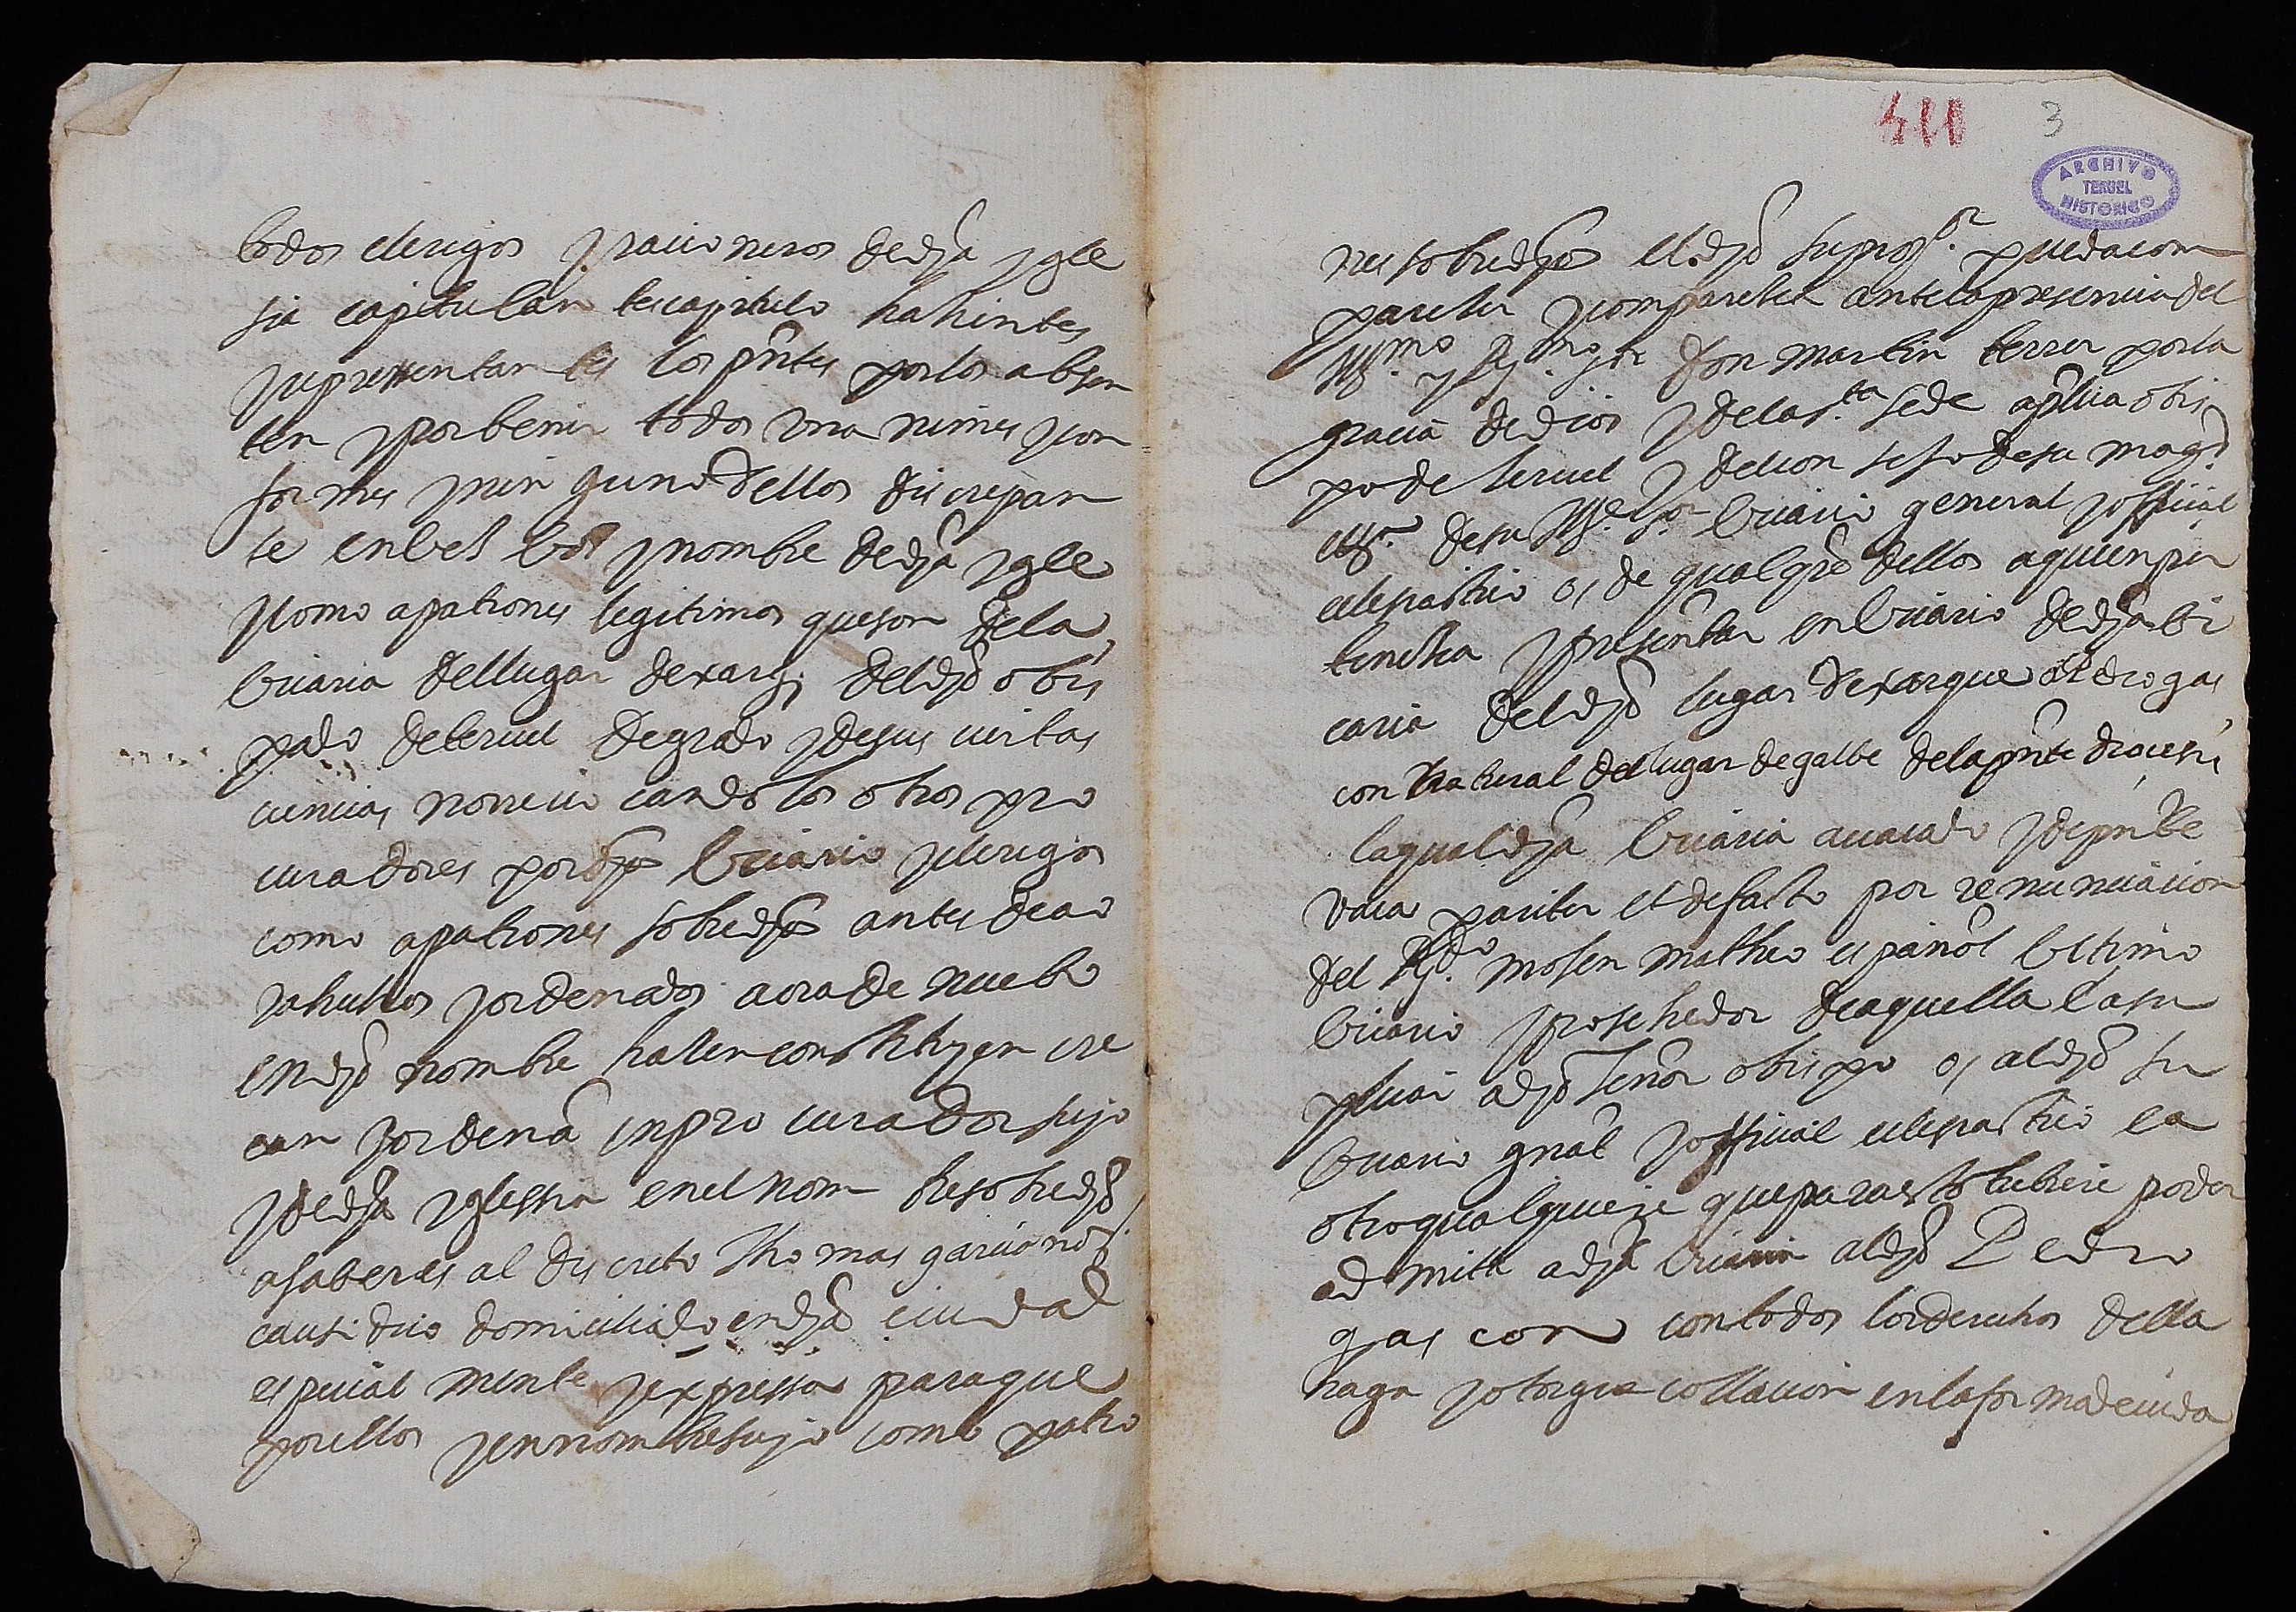 todos clerigos y racioneros de dha ygle
sia capitulantes capitulo hahintes
y representantes los pntes por los absen
tes y por benir todos vna nimes y con
formes y nin guno dellos discrepan
te en vez voz y nombre de dha ygle
y como a patrones legitimos que son de la
Vicaria del lugar de xarq; del dho obis
pado de teruel de grado y de sus ciertas
ciencias no reuo cando los otros pro
curadores por dhos Vicario y clerigos
como a patrones sobredhos antes de ao
ra hechos y ordenados aora de nuebo
en dho nombre hacen constituyen cre
an y ordenã en procurador suyo
y de dha yglessia en el nom bre sobredho
a saber es al discreto Thomas garcia not.
causidico domiciliado en dha ciudad
especial mente y expressa para que
por ellos y en nombre suyo como patro
411 3
ARCHIVO
TERUEL
HISTORICO
nes sobredhos el dho su pror. pueda com
parecer y comparezca ante la presencia del
Ill.mo y R.mo sor Don martin terrer por la
gracia de dios y de la s.ta sede aplica obis
po de teruel y del con sejo de su magd.
de su Ill.e sa Vicario general y official
eclesiastico o, de qualqre dellos a quien per
tenezca y presentar en Vicario de dha Vi
caria del dho lugar de xarque a Pedro gas
con Natural del lugar de galbe de la pnte diocesi,
la qual dha Vicaria a vacado y de pnte
vaca pariter et de facto por renunciacion
del Rdo. mosen matheo español Vltimo
Vicario y posehedor de aquella a su
plicar a dho señor obispo o, al dho su
Vicario gnãl y official eclesiastico la
otro qualquiere que para esto tubiere poder
ad mita a dha Vicaria al dho Pedro
gas con con todos los derechos della
haga y otorgue collacion en la forma deuida